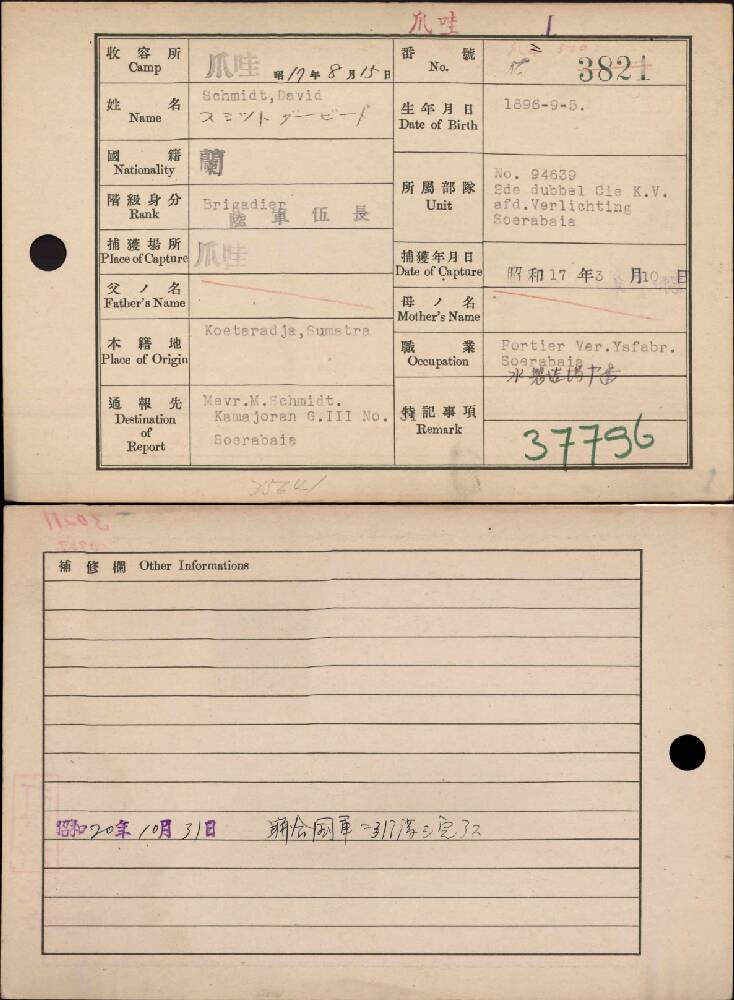 爪哇 1
收容所 Camp 爪哇 昭17年8月15日
番號 No. 3821
姓名 Name Schmidt,David
スミット ダービード
生年月日 Date of Birth 1896-9-5.
國籍 Nationality 蘭
階級身分 Rank Brigadier
陸軍伍長
所屬部隊 Unit No. 94639
2de dubbel Cie K.V.
afd.Verlichting
Soerabaia
捕獲場所 Place of Capture 爪哇
捕獲年月日 Date of Capture 昭和17年3月10日
父ノ名 Father's Name
母ノ名 Mother's Name
本籍地 Place of Origin Koetaradja,Sumatra
職業 Occupation Portier Ver.Ysfabr.
Soerabaia
通報先 Destination of Report Mevr.M.Schmidt.
Kamajoran G.III No.
Soerabaia
特記事項 Remark
37796
補修欄 Other Informations
昭和20年10月31日 聯合国軍ニ引渡シ完了ス